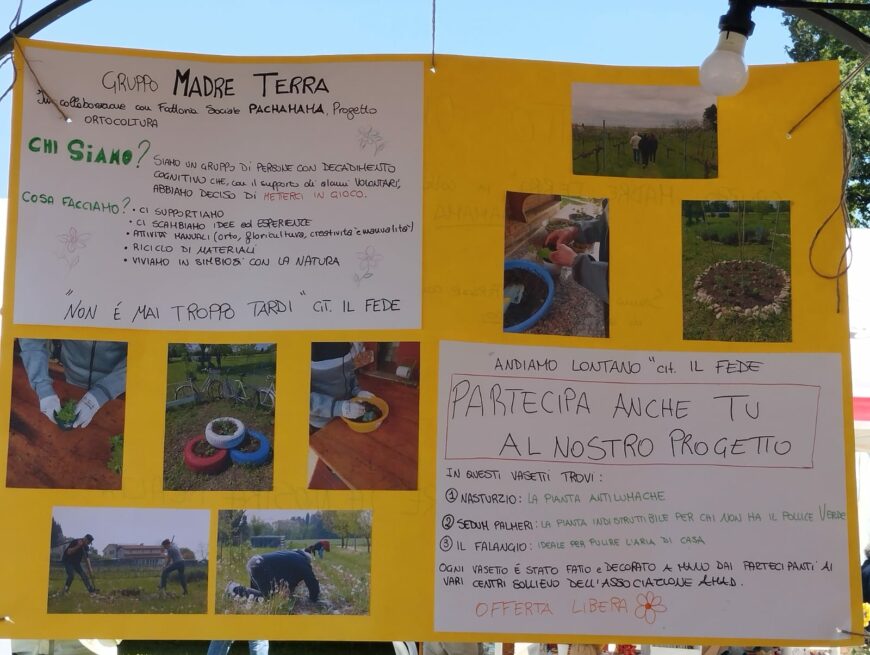 GRUPPO MADRE TERRA
In collaborazione con Fattoria Sociale PACHAMAMA, Progetto
ORTOCOLTURA
CHI SIAMO?
SIAMO UN GRUPPO DI PERSONE CON DECADIMENTO
COGNITIVO CHE, con il supporto di alcuni VOLONTARI,
ABBIAMO DECISO DI METTERCI IN GIOCO.
COSA FACCIAMO?
• CI SUPPORTIAMO
• CI SCAMBIAMO IDEE ed ESPERIENZE
• ATTIVITÀ MANUALI (orto, floricultura, creatività e manualità)
• RICICLO DI MATERIALI
• VIVIAMO IN SIMBIOSI CON LA NATURA
"NON É MAI TROPPO TARDI" CIT. IL FEDE
"ANDIAMO LONTANO" CIT. IL FEDE
PARTECIPA ANCHE TU
AL NOSTRO PROGETTO
IN QUESTI VASETTI TROVI:
① NASTURZIO: LA PIANTA ANTILUMACHE
② SEDUM PALMERI: LA PIANTA INDISTRUTTIBILE PER CHI NON HA IL POLLICE VERDE
③ IL FALANGIO: IDEALE PER PULIRE L'ARIA DI CASA
OGNI VASETTO É STATO FATTO e DECORATO A MANO DAI PARTECIPANTI AI
VARI CENTRI SOLLIEVO DELL'ASSOCIAZIONE AMAD.
OFFERTA LIBERA